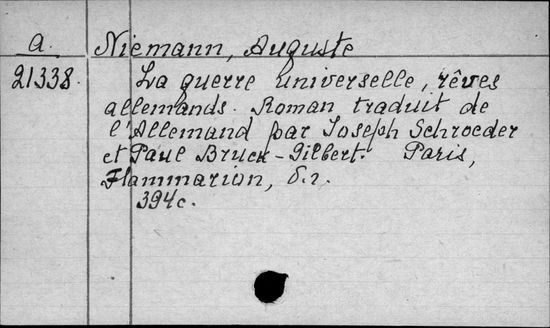 a. Niemann, Auguste
21338. La guerre universelle, rêves
allemands. Roman traduit de
l'Allemand par Joseph Schroeder
et Paul Bruck-Gilbert. Paris,
Flammarion, б.г.
394с.